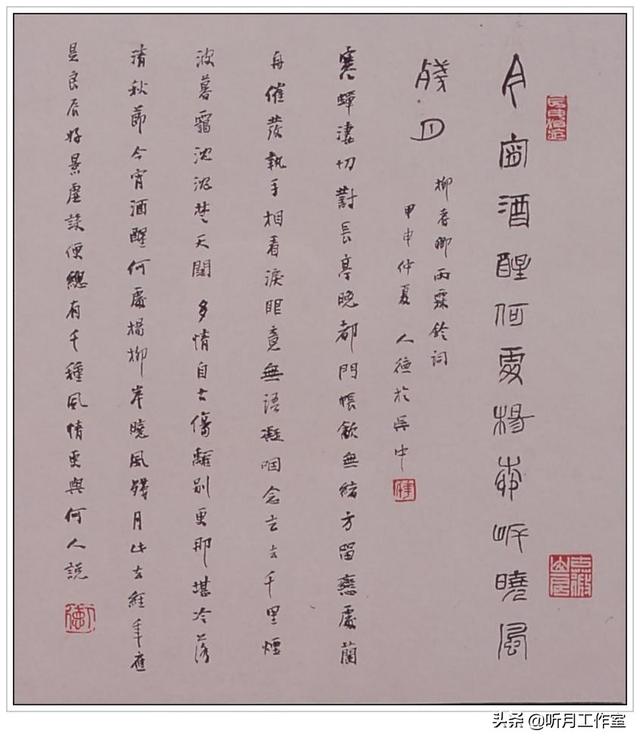 今宵酒醒何處楊柳岸曉風
殘月
柳耆卿雨霖鈴詞
甲申仲夏 人德於吳中
寒蟬淒切對長亭晚都門帳飲無緒方留戀處蘭
舟催發執手相看淚眼竟無語凝咽念去去千里煙
波暮靄沈沈楚天闊 多情自古傷離別更那堪冷落
清秋節今宵酒醒何處楊柳岸曉風殘月此去經年應
是良辰好景虛設便總有千種風情更與何人說
头条 @听月工作室